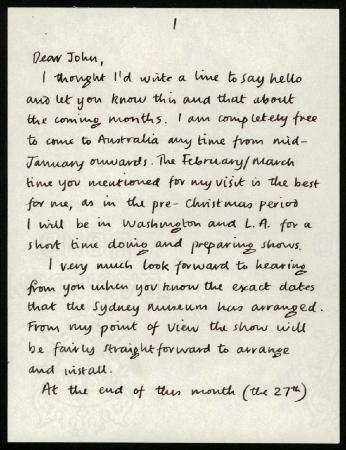 1
Dear John,
I thought I'd write a line to say hello
and let you know this and that about
the coming months. I am completely free
to come to Australia any time from mid-
January onwards. The February/March
time you mentioned for my visit is the best
for me, as in the pre-Christmas period
I will be in Washington and L.A. for a
short time doing and preparing shows.
I very much look forward to hearing
from you when you know the exact dates
that the Sydney museum has arranged.
From my point of view the show will
be fairly straightforward to arrange
and install.
At the end of this month (the 27th)